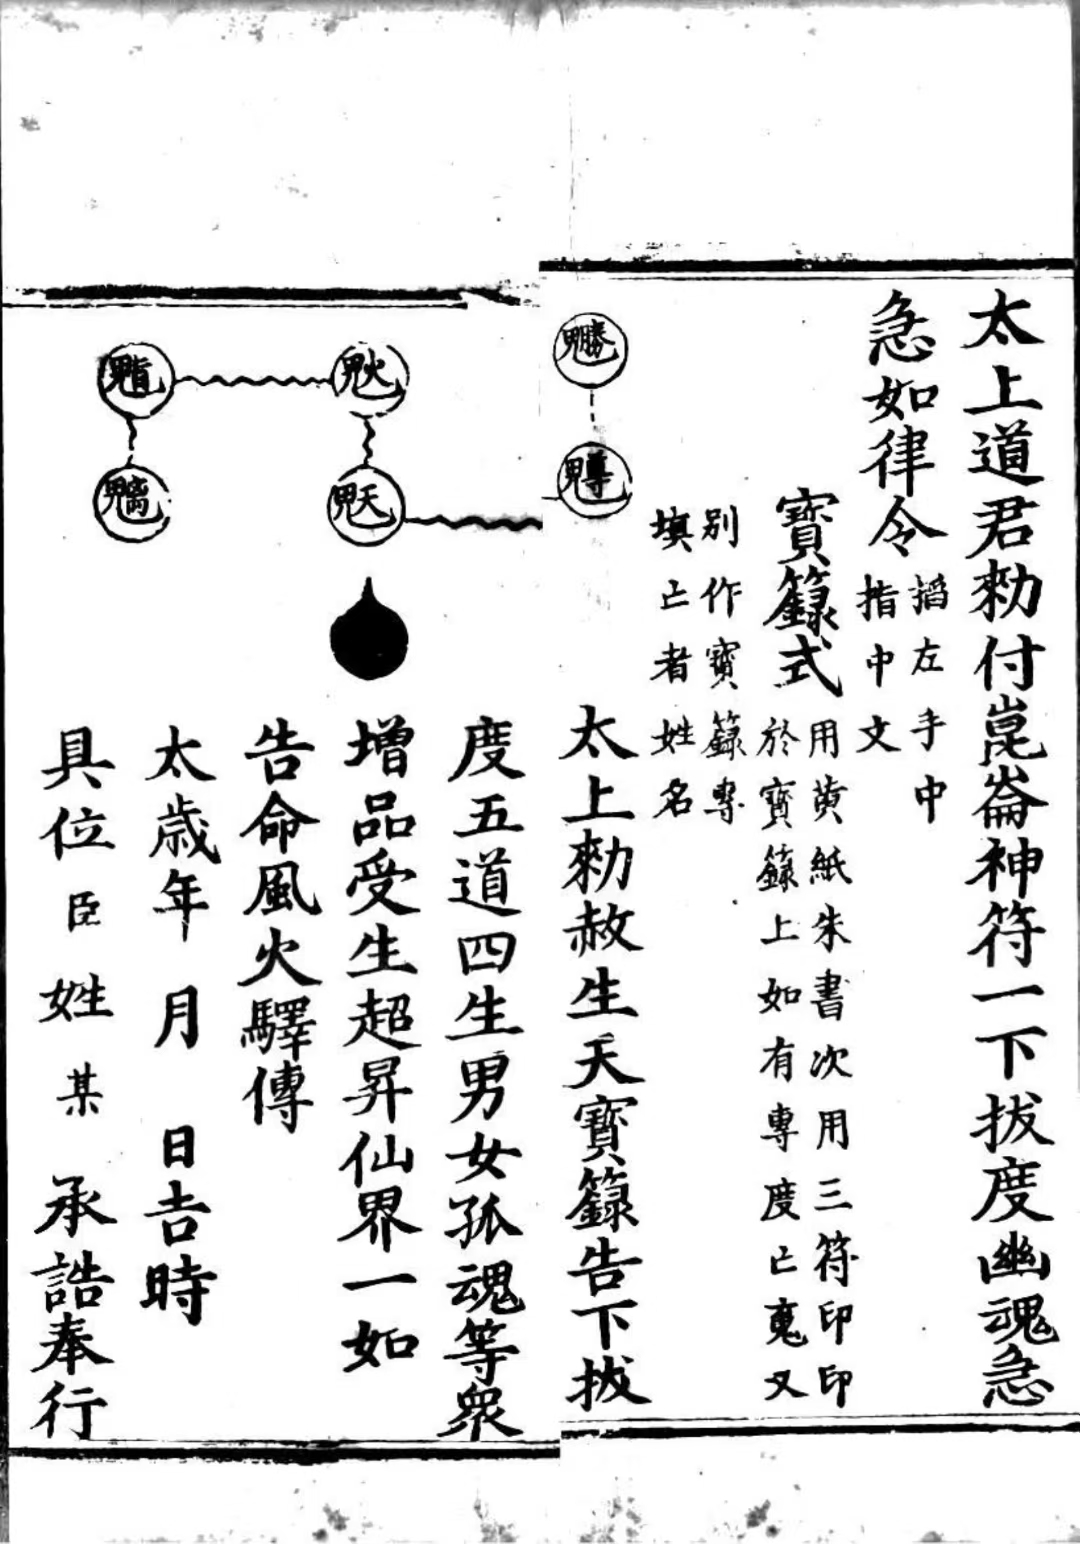 太上道君勑付崑崙神符一下拔度幽魂急
急如律令
搯左手中
指中文
寶籙式
用黄紙朱書次用三符印印
於寶籙上如有專度亡䰟又
别作寶籙專
填亡者姓名
太上勑赦生天寶籙告下拔
度五道四生男女孤魂等衆
增品受生超昇仙界一如
告命風火驛傳
太歳年 月 日吉時
具位臣姓某 承誥奉行